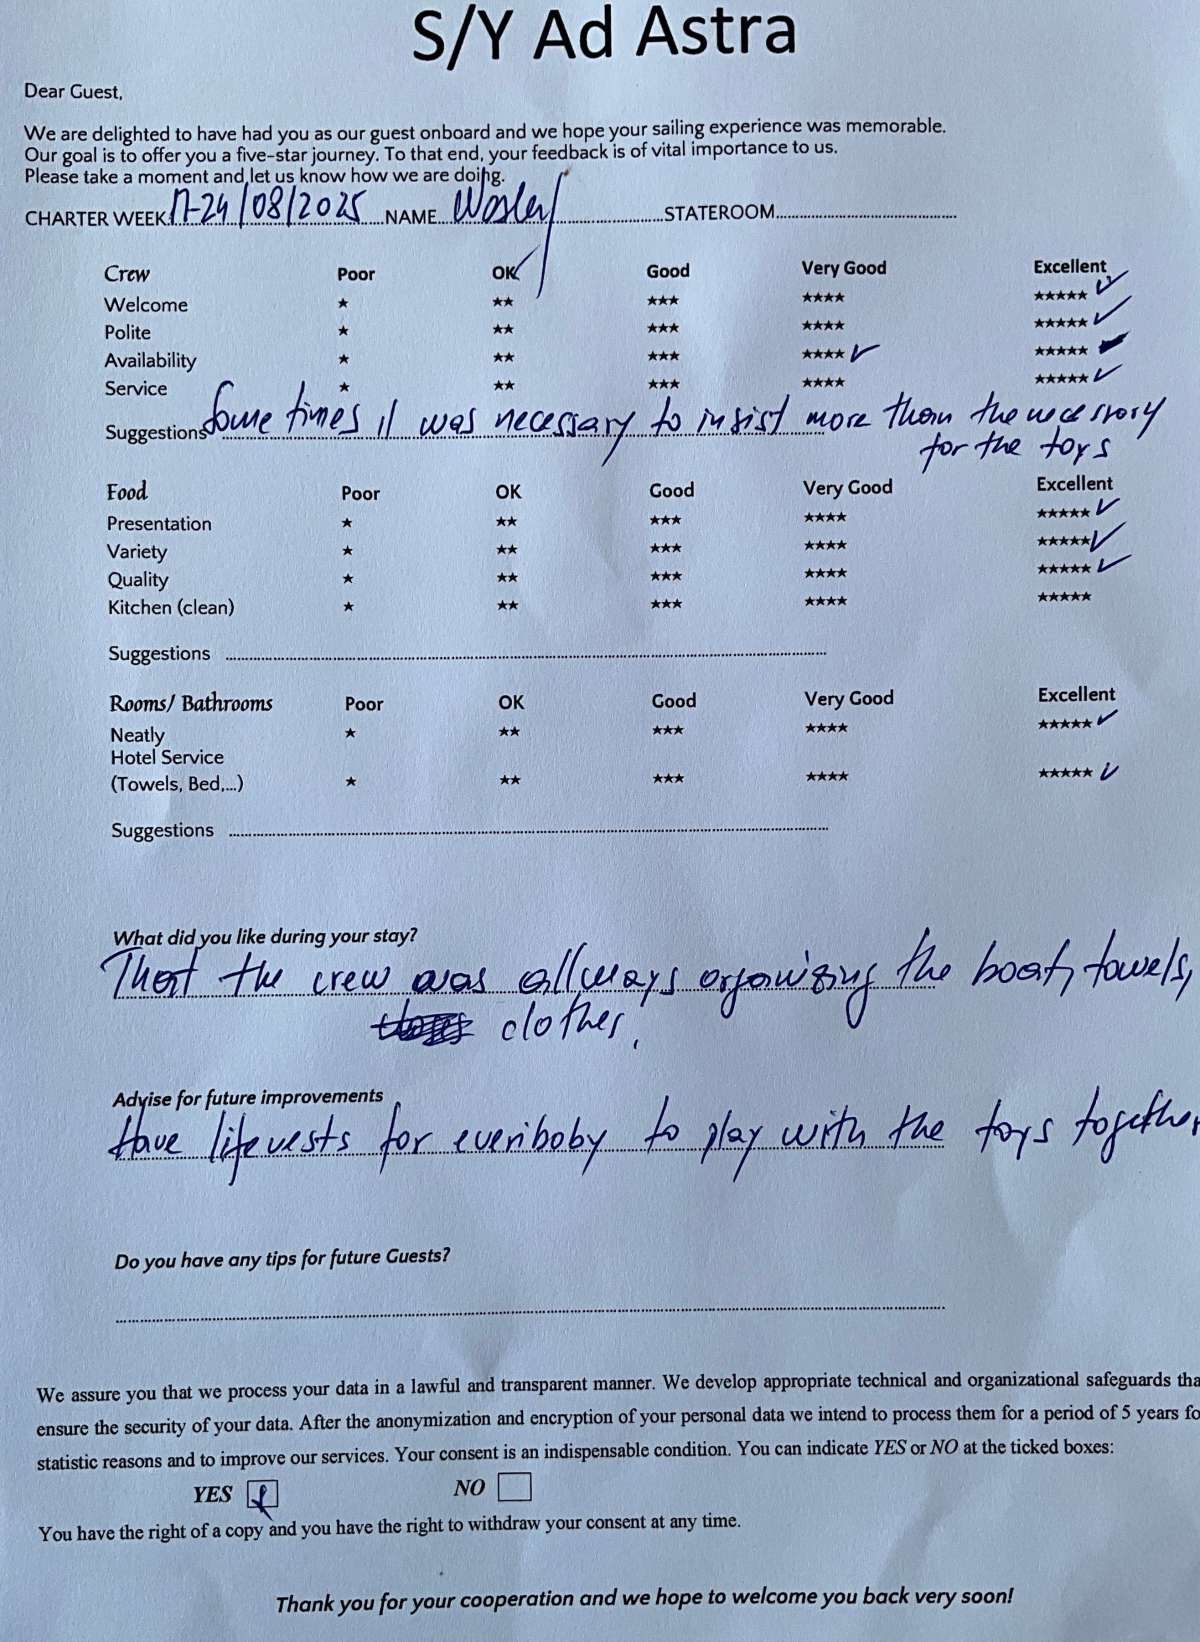 S/Y Ad Astra
Dear Guest,
We are delighted to have had you as our guest onboard and we hope your sailing experience was memorable.
Our goal is to offer you a five-star journey. To that end, your feedback is of vital importance to us.
Please take a moment and let us know how we are doing.
CHARTER WEEK 17-24/08/2025 NAME STATEROOM
Crew Poor OK Good Very Good Excellent
Welcome ★ ★★ ★★★ ★★★★ ★★★★★ ✓
Polite ★ ★★ ★★★ ★★★★ ★★★★★ ✓
Availability ★ ★★ ★★★ ★★★★ ✓ ★★★★★
Service ★ ★★ ★★★ ★★★★ ★★★★★ ✓
Suggestions Some times it was necessary to insist more than the necessary
for the toys
Food Poor OK Good Very Good Excellent
Presentation ★ ★★ ★★★ ★★★★ ★★★★★ ✓
Variety ★ ★★ ★★★ ★★★★ ★★★★★ ✓
Quality ★ ★★ ★★★ ★★★★ ★★★★★ ✓
Kitchen (clean) ★ ★★ ★★★ ★★★★ ★★★★★
Suggestions
Rooms/ Bathrooms Poor OK Good Very Good Excellent
Neatly ★ ★★ ★★★ ★★★★ ★★★★★ ✓
Hotel Service
(Towels, Bed,...) ★ ★★ ★★★ ★★★★ ★★★★★ ✓
Suggestions
What did you like during your stay?
That the crew was allways organizing the boat, towels,
clothes.
Advise for future improvements
Have life vests for everiboby to play with the toys together
Do you have any tips for future Guests?
We assure you that we process your data in a lawful and transparent manner. We develop appropriate technical and organizational safeguards tha
ensure the security of your data. After the anonymization and encryption of your personal data we intend to process them for a period of 5 years fo
statistic reasons and to improve our services. Your consent is an indispensable condition. You can indicate YES or NO at the ticked boxes:
YES NO
You have the right of a copy and you have the right to withdraw your consent at any time.
Thank you for your cooperation and we hope to welcome you back very soon!